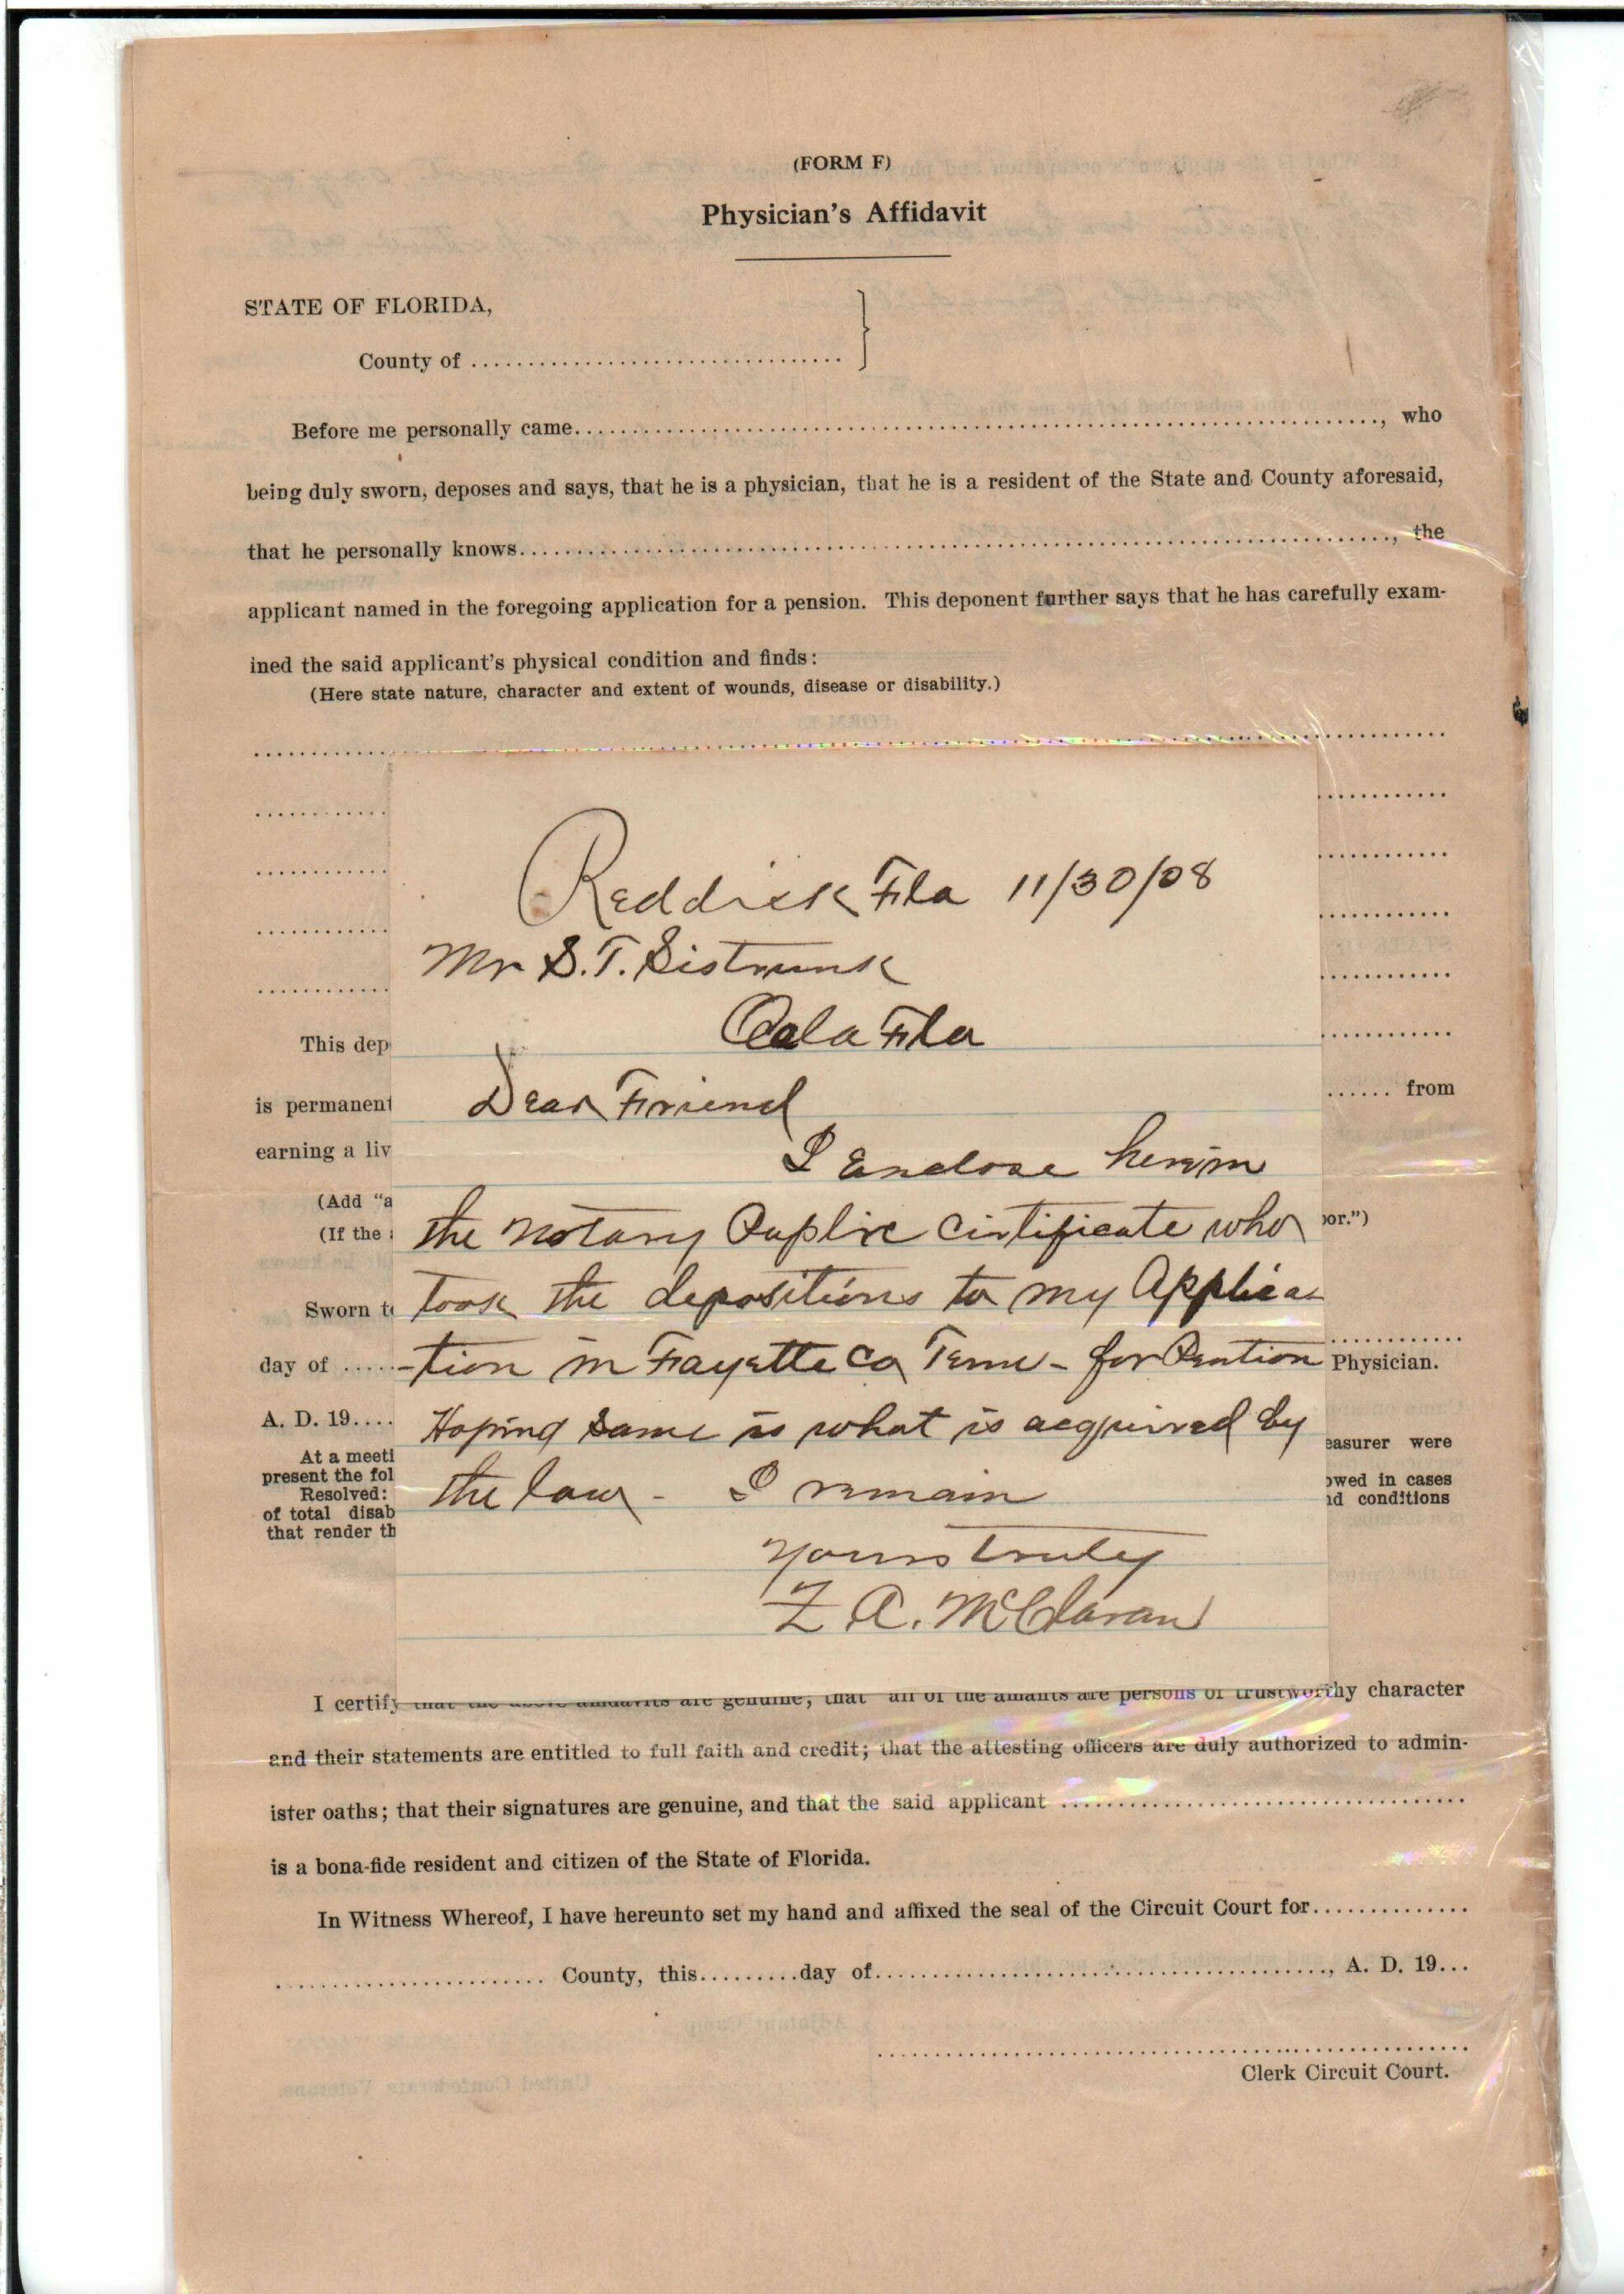 (FORM F)
Physician's Affidavit
STATE OF FLORIDA,
County of
Before me personally came, who
being duly sworn, deposes and says, that he is a physician, that he is a resident of the State and County aforesaid,
that he personally knows, the
applicant named in the foregoing application for a pension. This deponent further says that he has carefully exam-
ined the said applicant's physical condition and finds:
(Here state nature, character and extent of wounds, disease or disability.)
Reddick Fla 11/30/08
Mr S. T. Sistrunk
Ocala Fla
Dear Friend
I Enclose herein
the Notary Puplic Cirtificate who
took the depositions to my Applica
-tion in Fayette Co Tenn - for Pention
Hoping same is what is acquired by
the law - I remain
Yours truly
Z A. McClaran
This dep
is permanent from
earning a liv
(Add "a
(If the or.")
Sworn t
day of Physician.
A. D. 19....
At a meeti easurer were
present the fol
Resolved: owed in cases
of total disab nd conditions
that render th
I certify that the above affidavits are genuine; that all of the affiants are persons of trustworthy character
and their statements are entitled to full faith and credit; that the attesting officers are duly authorized to admin-
ister oaths; that their signatures are genuine, and that the said applicant
is a bona-fide resident and citizen of the State of Florida.
In Witness Whereof, I have hereunto set my hand and affixed the seal of the Circuit Court for
County, this.........day of, A. D. 19...
Clerk Circuit Court.